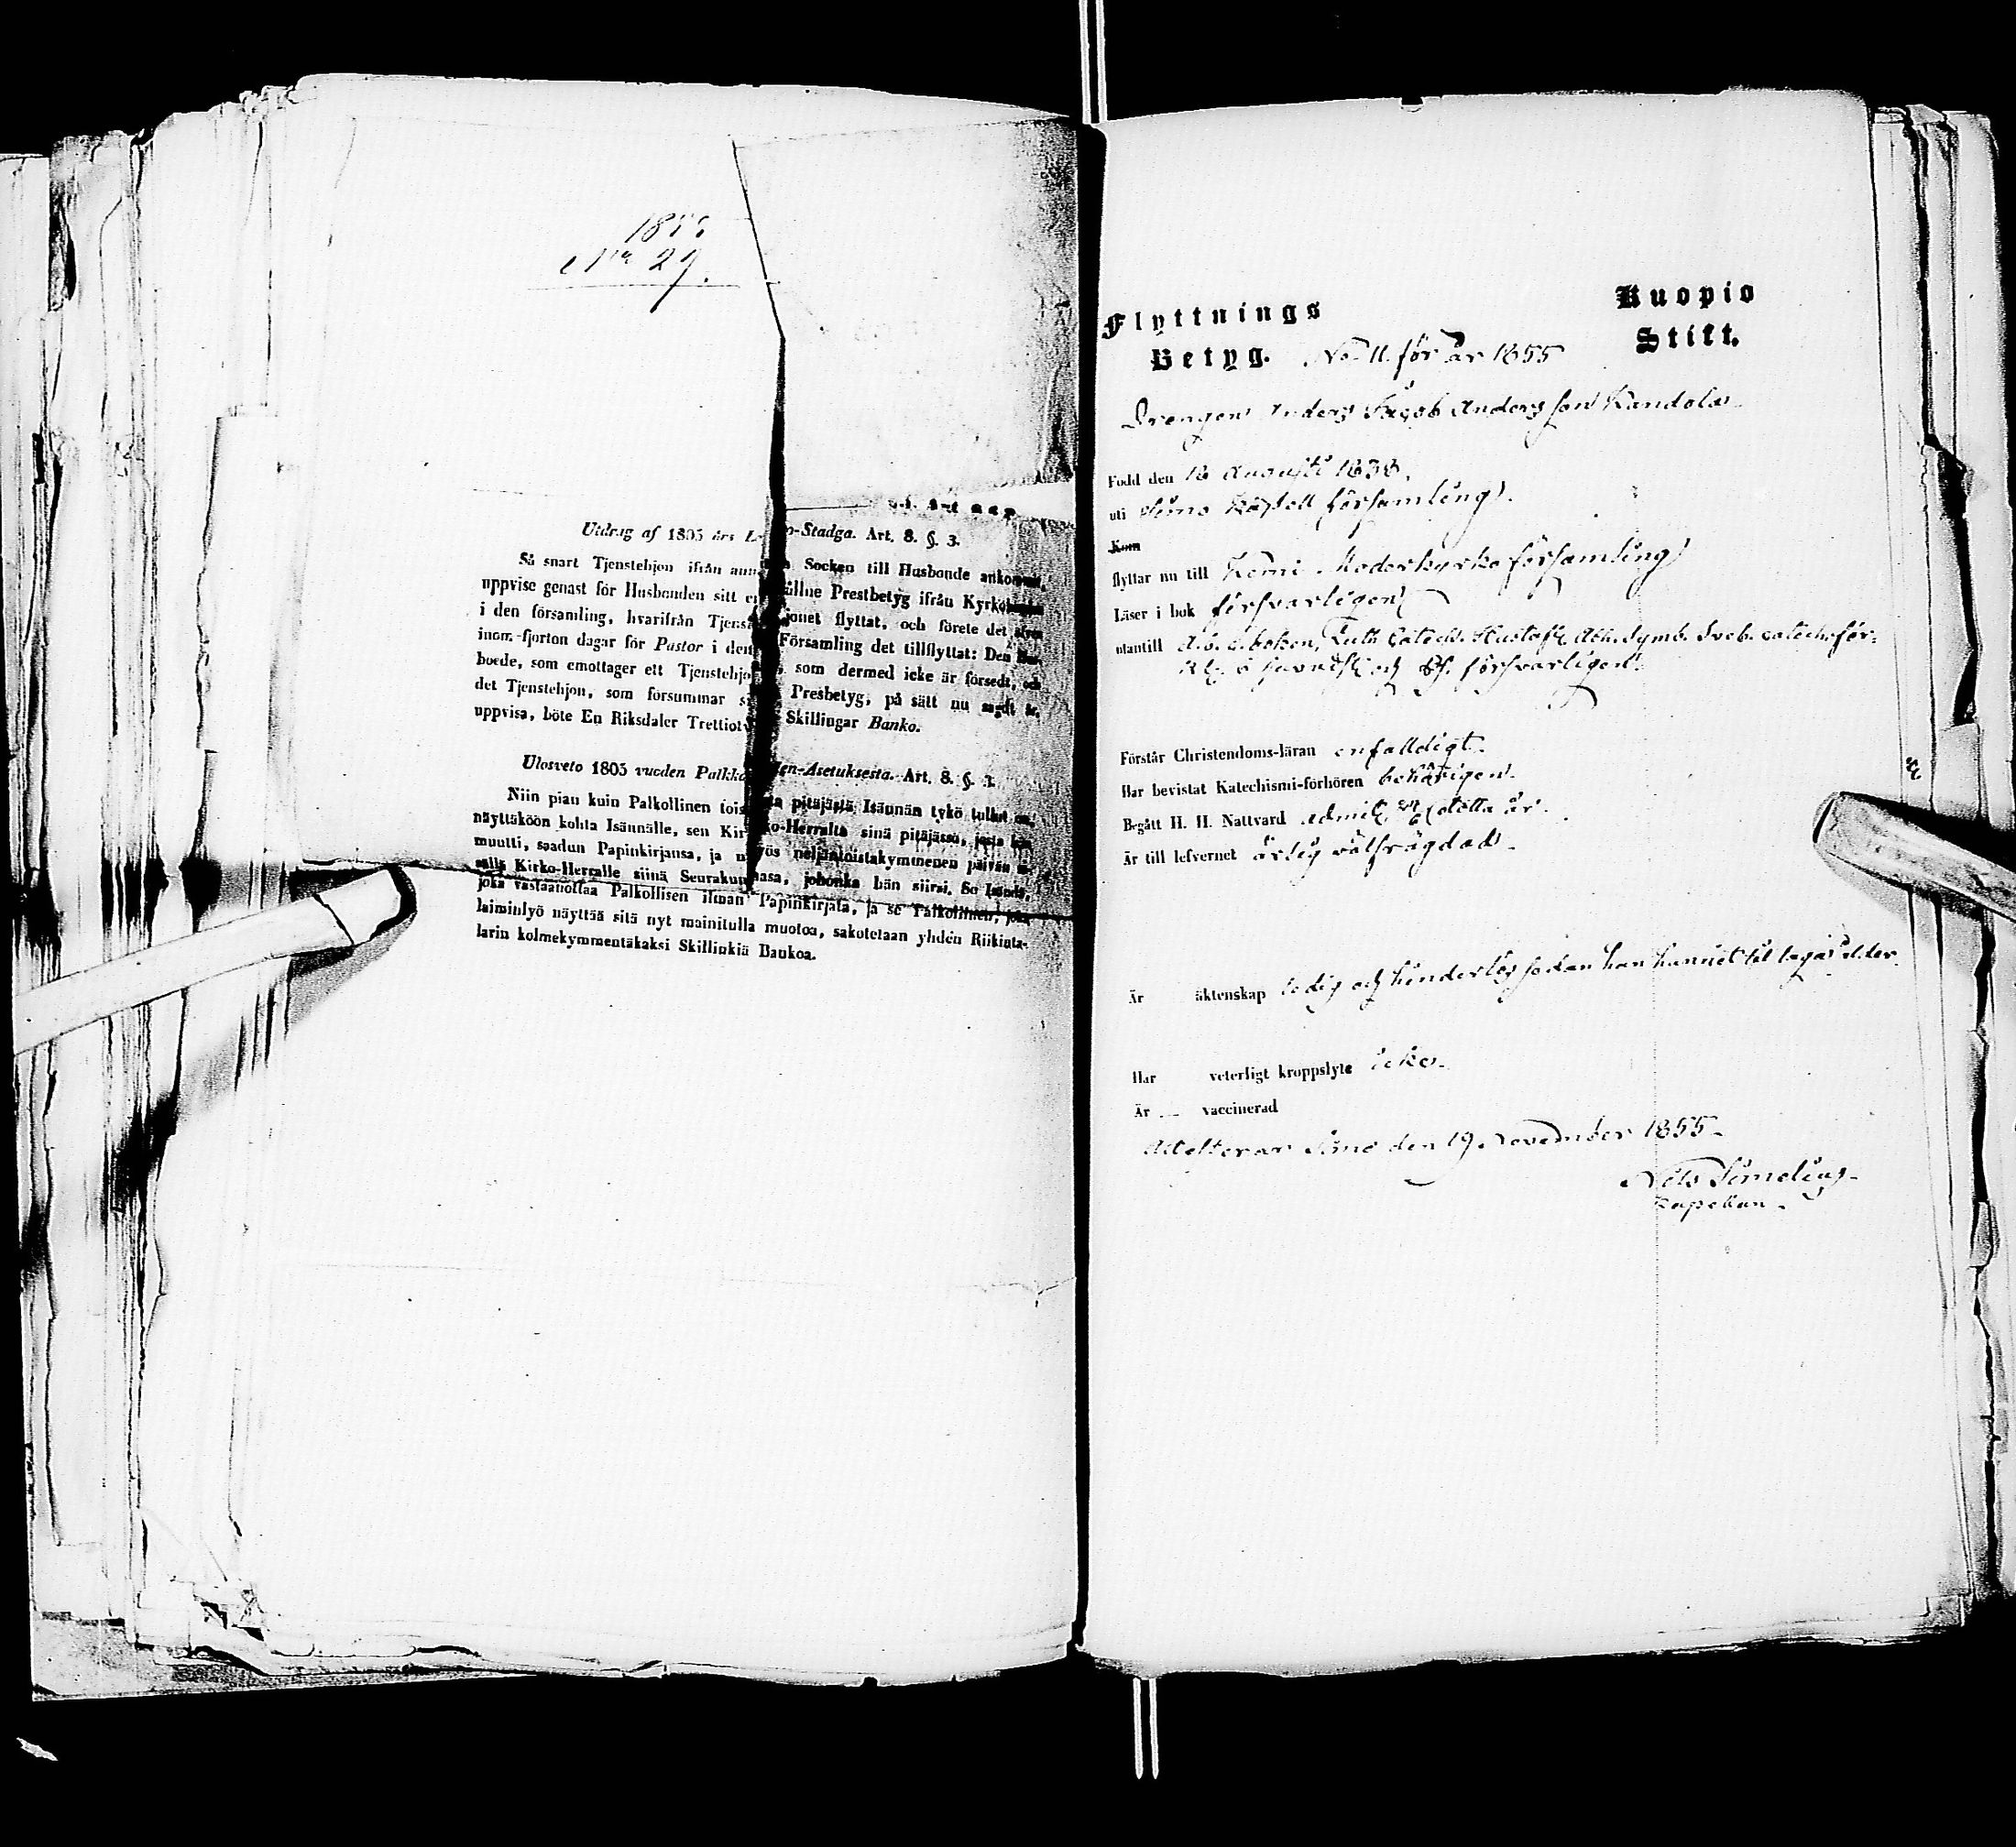 1855
No 29.
Utdrag af 1805 års Lego-Stadga. Art. 8. §. 3.
Så snart Tjenstehjon ifrån annan Socken till Husbonde ankommit,
uppvise genast för Husbonden sitt erhållne Prestbetyg ifrån
i den församling, hvarifrån Tjenstehjonet flyttat, och förete det
inom fjorton dagar för Pastor i den Församling det tillflyttat: Den
boede, som emottager ett Tjenstehjon, som dermed icke är försedt, och
det Tjenstehjon, som försummar sitt Presbetyg, på sätt nu sagdt är,
uppvisa, böte En Riksdaler Trettiotvå Skillingar Banko.
Ulosveto 1805 vuoden Palkollisten-Asetuksesta. Art. 8. §. 3.
Niin pian kuin Palkollinen toisesta pitäjästä Isännän tykö tullut on,
näyttäköön kohta Isännälle, sen Kirkko-Herralta sinä pitäjässä, josta hän
muutti, saadun Papinkirjansa, ja myös neljäntoistakymmenen päivän
sällä Kirko-Herralle siinä Seurakunnasa, johonka hän siirsi. Se Isäntä,
joka vastaanottaa Palkollisen ilman Papinkirjata, ja se Palkollinen, joka
laiminlyö näyttää sitä nyt mainitulla muotoa, sakotetaan yhdén Riikinta-
larin kolmekymmentäkaksi Skillinkiä Bankoa.
Flyttnings Kuopio
Betyg. No 11. för år 1855 Stift.
Drengen Anders Jacob Andersson Kandola
Född den 18 Augusti 1838.
uti Simo Kapell församling.
Kom
flyttar nu till Kemi Moderkyrko församling
Läser i bok försvarligen
utantill a.b.c. boken, Luth. Catech. Hustafl. Ath. Symb. Sveb. catech. för-
försvarligen.
Förstår Christendoms-läran enfalldigt.
Har bevistat Katechismi-förhören behörigen.
Begått H. H. Nattvard admit. detta år.
Är till lefvernet ärlig välfrägdad.
Är äktenskap ledig och hinderlös sedan han hunnit till laga ålder.
Har veterligt kroppslyte icke.
Är vaccinerad
Attesterar Simo den 19 November 1855.
Nils Simelius.
Kapellan.